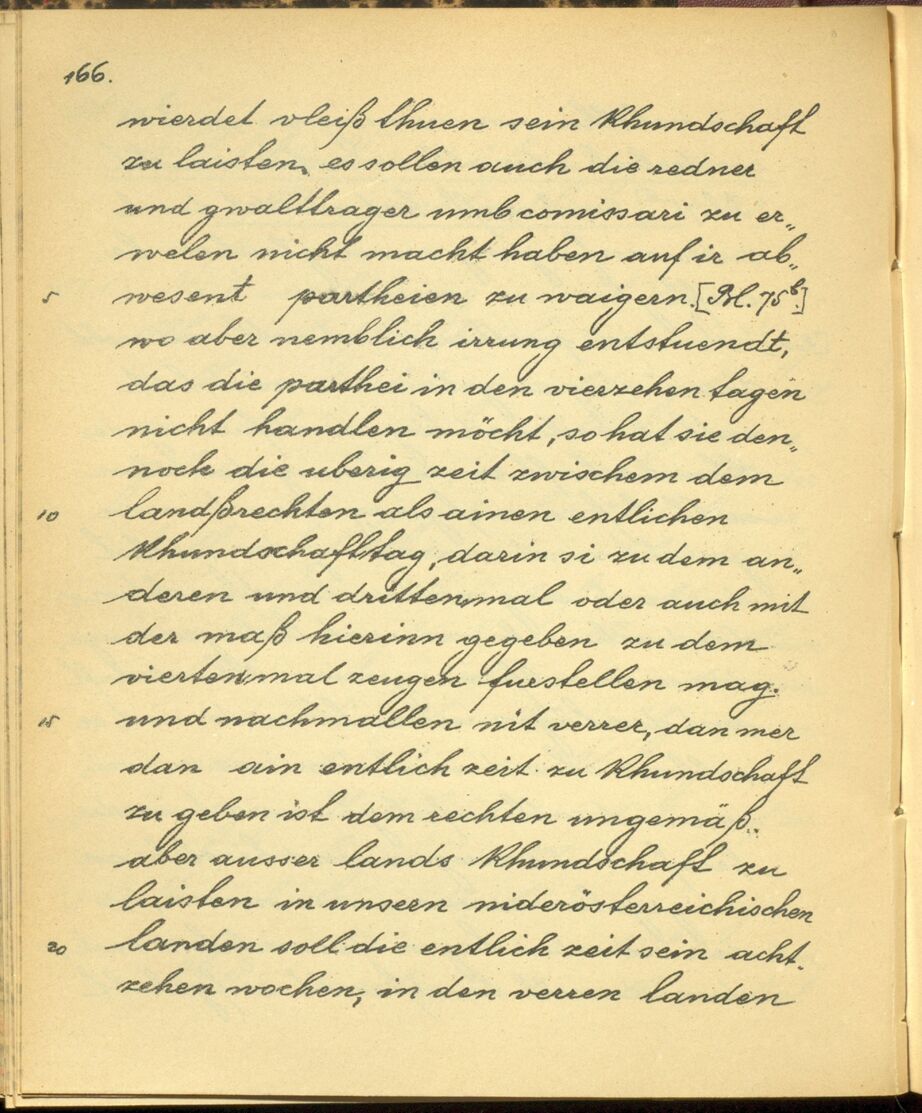 166.
wierdet vleiß thuen sein khundschaft
zu laisten, es sollen auch die redner
und gwalttrager umb comissari zu er„
welen nicht macht haben auf ir ab„
5 wesent partheien zu waigern. [Bl. 75b.]
wo aber nemblich irrung entstuendt,
das die parthei in den vierzehen tagen
nicht handlen möcht, so hat sie den„
noch die uberig zeit zwischem dem
10 landßrechten als ainen entlichen
khundschafttag, darin si zu dem an„
deren und drittenmal oder auch mit
der maß hierinn gegeben zu dem
viertenmal zeugen furstellen mag.
15 und nachmallen nit verrer, dan mer
dan ain entlich zeit zu khundschaft
zu geben ist dem rechten ungemäß.
aber ausser lands khundschaft zu
laisten in unsern niderösterreichischen
20 landen soll die entlich zeit sein acht-
zehen wochen, in den verren landen